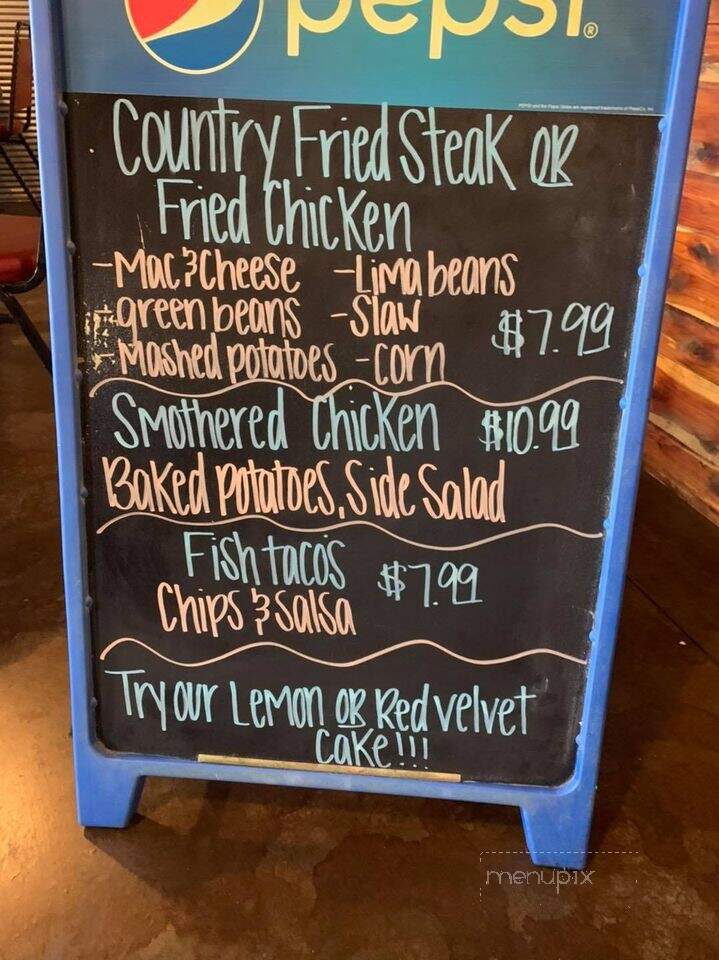 pepsi®
Country Fried Steak OR
Fried Chicken
-Mac & Cheese -Lima beans
-green beans -Slaw $7.99
-Mashed potatoes -corn
Smothered Chicken $10.99
Baked Potatoes, Side Salad
Fish tacos $7.99
Chips & Salsa
Try our Lemon OR Red velvet
cake!!!
menupix